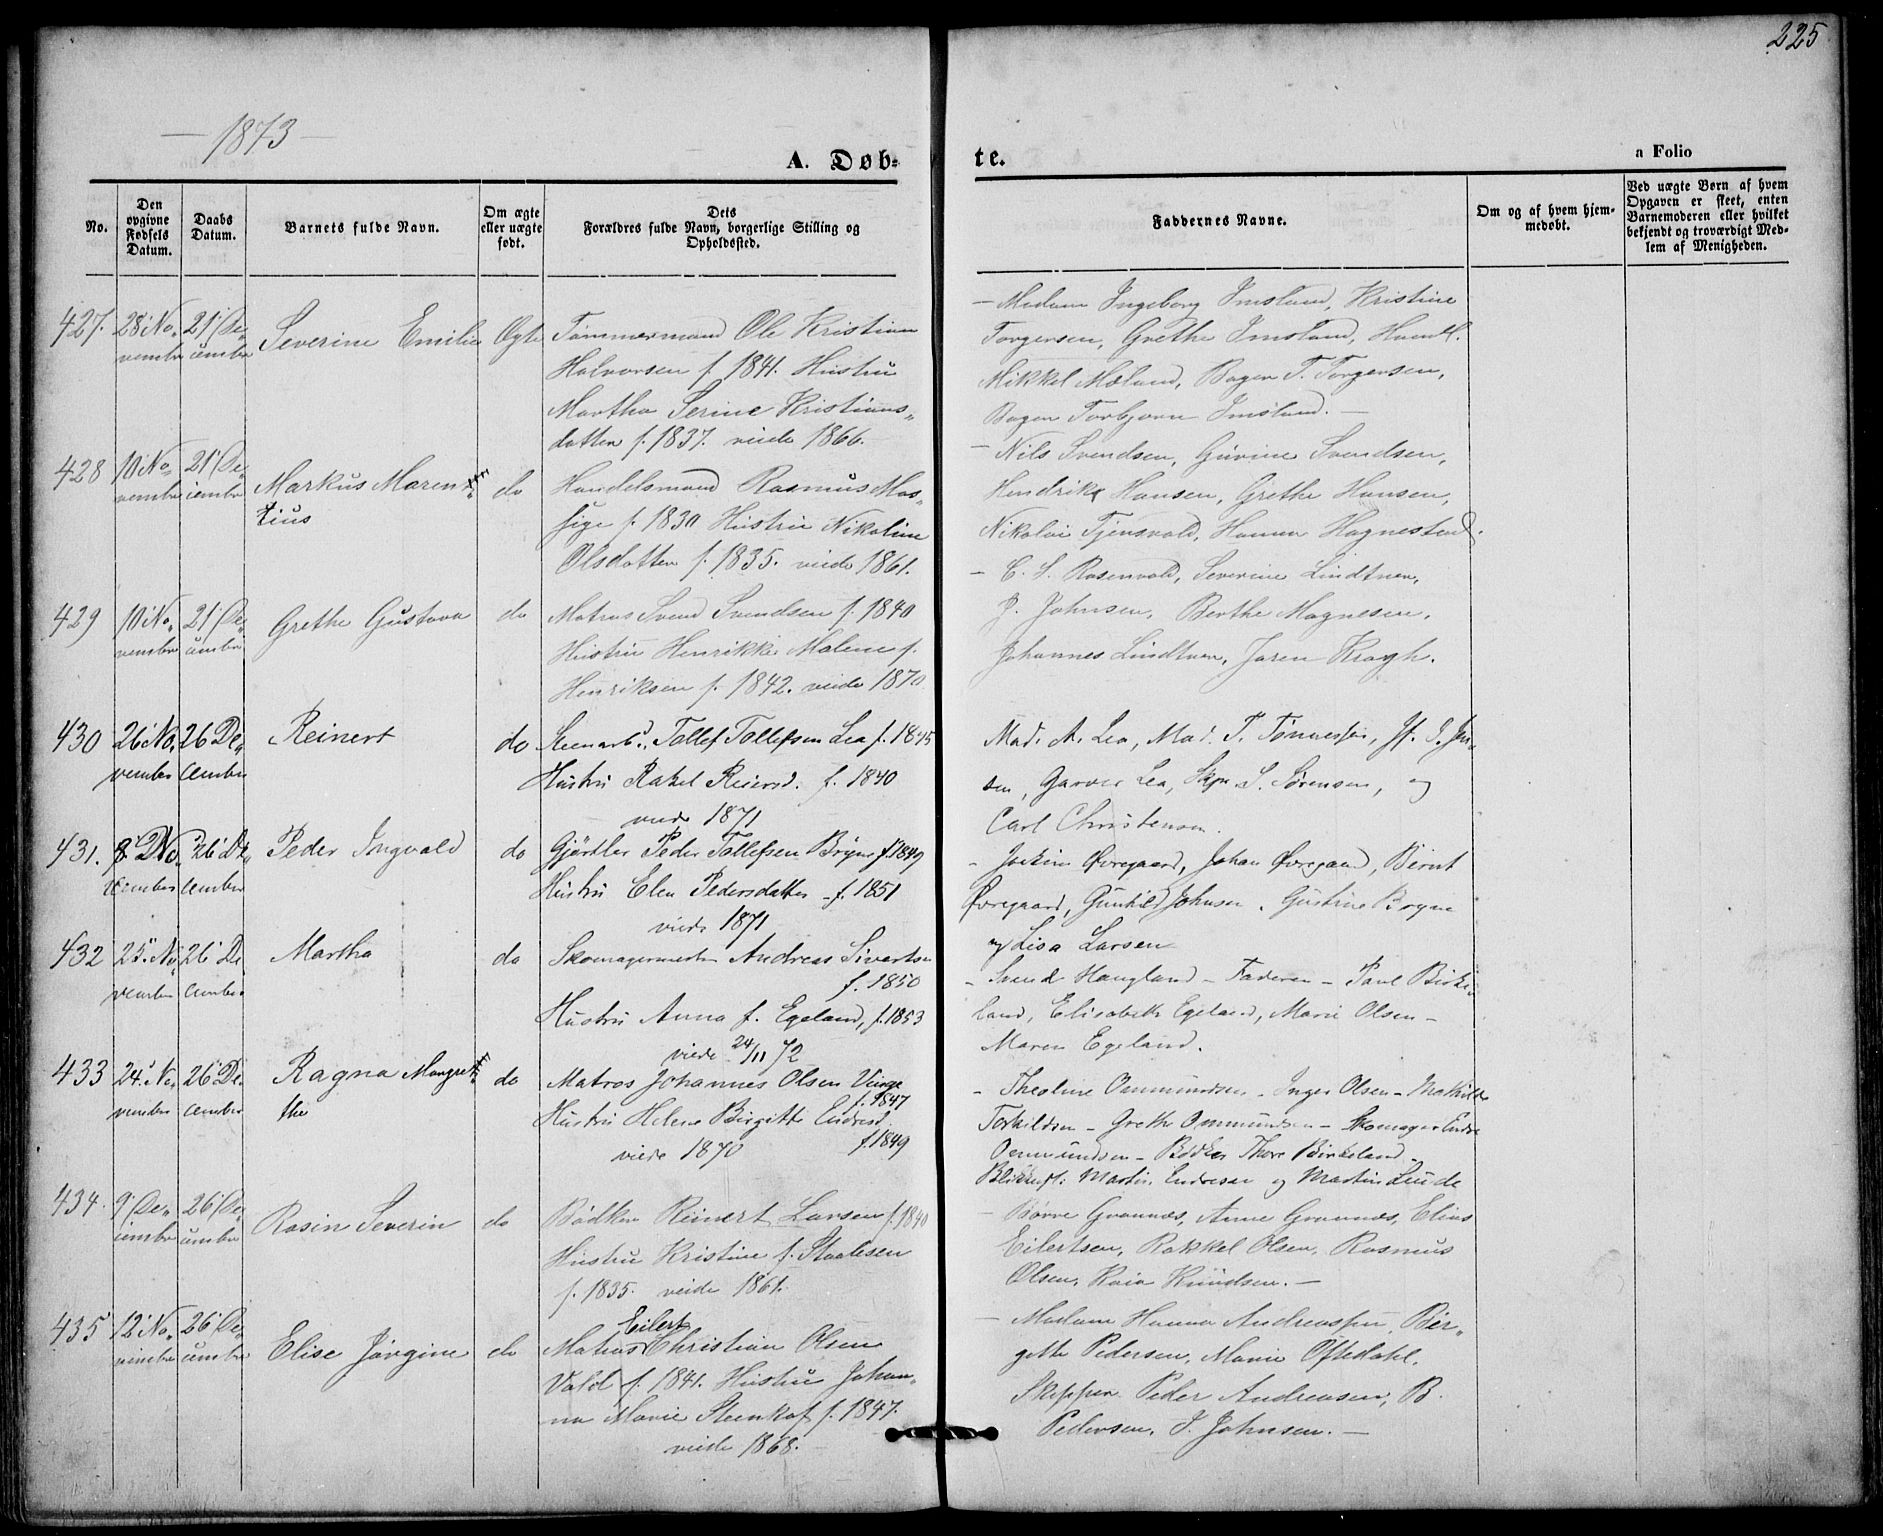 225
— 1873 —
A. Døb-
te.
a Folio
No.
Den opgivne Fødsels Datum.
Daabs Datum.
Barnets fulde Navn.
Om ægte eller uægte født.
Dets Forældres fulde Navn, borgerlige Stilling og Opholdssted.
Faddernes Navne.
Om og af hvem hjemmedøbt.
Ved uægte Børn af hvem Opgaven er skeet, enten Barnemoderen eller hvilket bekjendt og troværdigt Medlem af Menigheden.
427. 28' No- 21' De- Severine Emilie Ægte Tømmermand Ole Kristian
vember cember
Halvorsen f. 1841. Hustru
Martha Serine Kristians-
datter f. 1837. viede 1866.
— Madam Ingeborg Imsland, Kristine
Torgersen, Grethe Imsland, Handl.
Mikkel Mæland, Bager T. Torgersen,
Bager Torbjørn Imsland. —
428 10' No- 21' De- Markus Maren- do Handelsmand Rasmus Mos-
vember cember tius
sige f. 1830 Hustru Nikoline
Olsdatter f. 1835. viede 1861.
— Nils Svendsen, Gurine Svendsen,
Hendrik Hansen, Grethe Hansen,
Nikolai Tjensvold, Hanna Hognestad.
429 10' No- 21' De- Grethe Gustava do Matros Svend Svendsen f. 1840
vember cember
Hustru Henrikke Malene f.
Henriksen f. 1842. viede 1870
— C. S. Rosenvold, Severine Lindtner,
J. Johnsen, Berthe Magnesen,
Johannes Lindtner, Jaren Kragh.
430 26 No- 26 De- Reinert do Steenarb. Tollef Tollefsen Lea f. 1845
vember cember
Hustru Rakel Reiersd. f. 1840
viede 1871
Mad. A. Lea, Mad. T. Tønnessen, Jf. J. Jen-
sen, Garver Lea, Skpr S. Sørensen, og
Carl Christensen.
431. 8' No 26' De- Peder Ingvald do Gjørtler Peder Tollefsen Bryne f. 1849
vember cember
Hustru Elen Pedersdatter f. 1851
viede 1871
– Joakim Øvregaard, Johan Øvregaard, Bernt
Øvregaard, Gunhild Johnsen, Gustine Bryne
og Lisa Larsen
432 25' No 26' De Martha do Skomagermester Andreas Sivertsen
vember cember
f. 1850
Hustru Anna f. Egeland, f. 1853
viede 24/11 72
– Svend Haugland – Faderen – Paul Birke-
land, Elisabeth Egeland, Marie Olsen –
Maren Egeland.
433 24' No- 26' De- Ragna Mangret- do Matros Johannes Olsen
vember cember the
f. 1847
Hustru Helene Birgitte Endresd.
f. 1849
viede 1870
– Theoline Ommundsen – Inger Olsen – Mathilde
Torkildsen – Grethe Ommundsen – Skomager Endre
Ommundsen – Bødker Thore Birkeland –
Blikkensl: Martin Endresen og Martin Lunde
434. 9' De- 26' De- Rasin Severin do Bødker Reinert Larsen f. 1840
cember cember
Hustru Kristine f. Staalesen
f. 1835. viede 1861.
– Børre Grannæs, Anne Grannæs, Elias
Eilertsen, Rakkel Olsen, Rasmus
Olsen, Raia Knudsen. —
435 12' No- 26' De- Elise Jørgine do Matros Eilert Christian Olsen
vember cember
Vold f. 1841. Hustru Johan-
na Marie Steenkaf f. 1847.
viede 1868.
— Madam Hanna Andreassen, Bir-
gitte Pedersen, Marie Oftedahl,
Skipper Peder Andreasen, B.
Pedersen, J. Johnsen. —